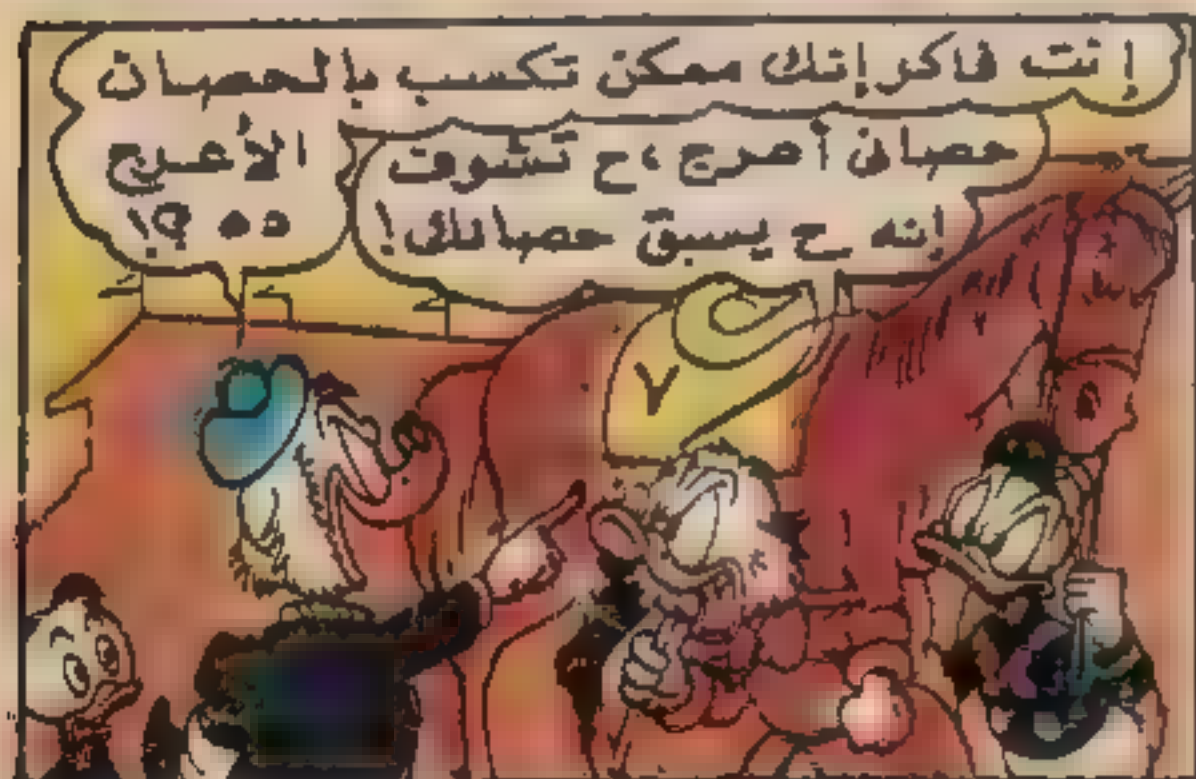 إنت فاكر إنك ممكن تكسب بالحصان
الأعرج
ده ؟!
حصان أعرج ، ح تشوف
إنه ح يسبق حصانك !
٧